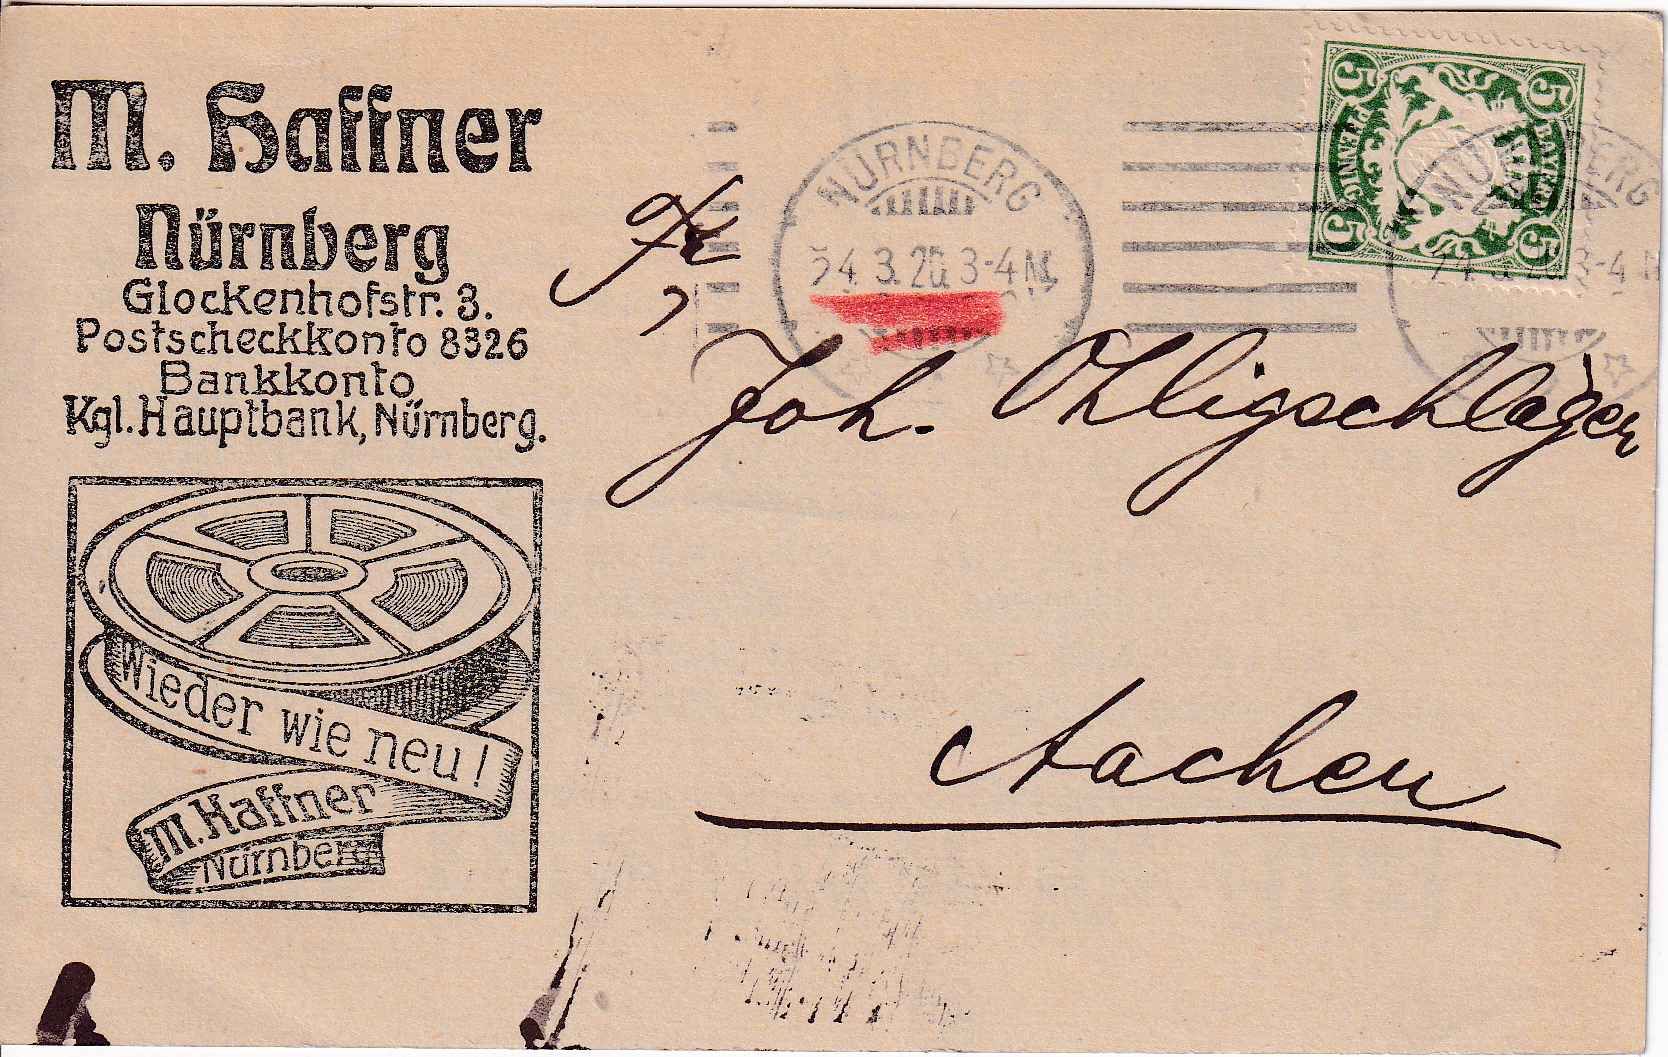 M. Haffner
Nürnberg
Glockenhofstr. 3.
Postscheckkonto 8326
Bankkonto
Kgl. Hauptbank, Nürnberg.
Wieder wie neu!
M. Haffner
Nürnberg
NÜRNBERG
4.3.20. 3-4 N.
5 5
PFENNIG BAYERN
5 5
NÜRNBERG
3-4 N
Joh. Ohligschläger
Aachen